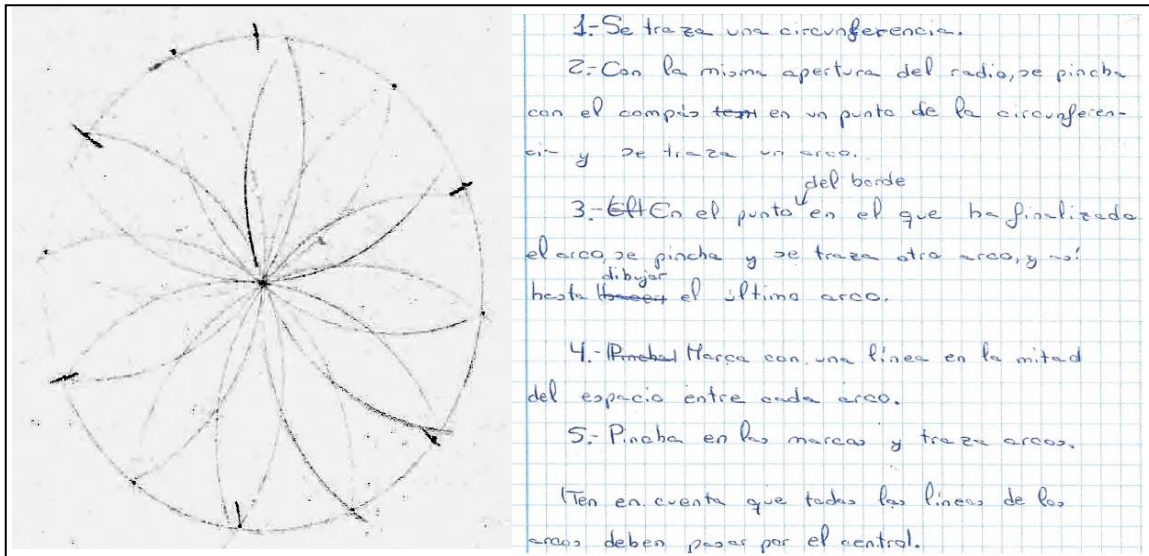 1.- Se traza una circunferencia.
2.- Con la misma apertura del radio, se pincha
con el compás en un punto de la circunferen-
cia y se traza un arco.
del borde
3.- En el punto en el que ha finalizado
el arco, se pincha y se traza otro arco, y así
dibujar
hasta el último arco.
4.- Marca con una línea en la mitad
del espacio entre cada arco.
5.- Pincha en las marcas y traza arcos.
(Ten en cuenta que todas las líneas de los
arcos deben pasar por el central.